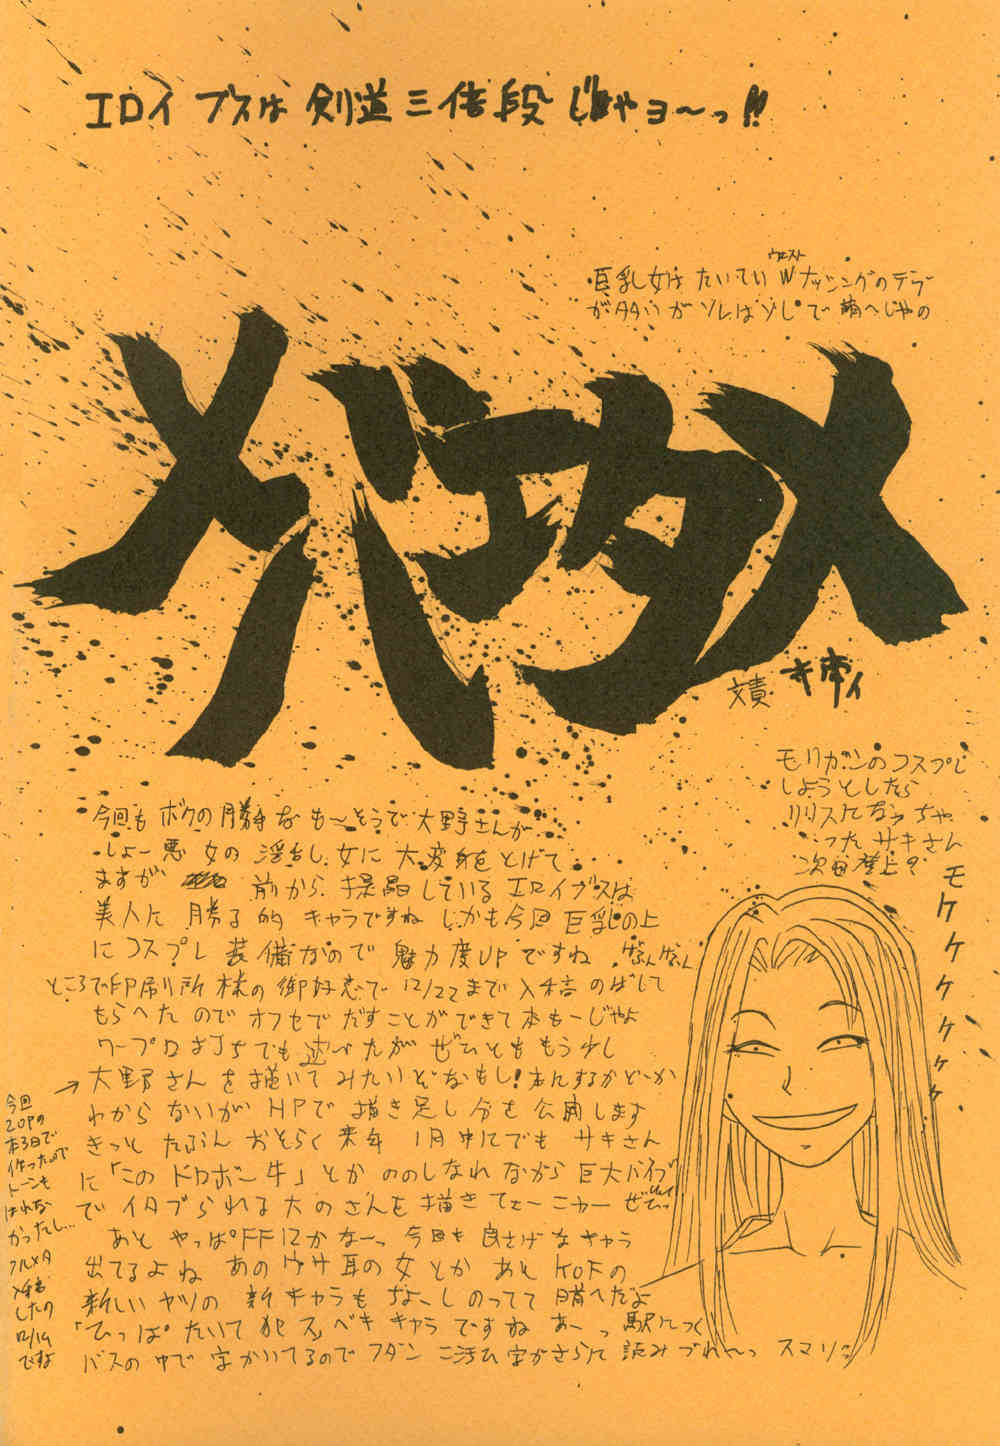 エロイ ブスは 剣道三倍段 じゃョ〜っ!!
ウエスト
巨乳女は たいてい Wナッシングのデブ
が多いが ソレはソレで 萌へじゃの
メバエタメ
文責
モリガンのコスプレ
しようとしたら
リリスになっちゃ
った サキさん
次回 登上?
モケケケケケケ
今回も ボクの勝手な も〜そうで 大野さんが
しょー悪女の 淫乱し女に 大変身をとげて
ますが 前から 提唱している エロイブスは
美人に 勝る 的 キャラですね しかも今回 巨乳の上
にコスプレ 装備なので 魅力度UPですね
ところで印刷所様の御好意で 12/22まで入稿のばして
もらへたので オフセでだすことができて本もーじゃよ
ワープロ打ちでも 述べたが ぜひとももう少し
→大野さんを描いてみたいぞなもし! 本にするかどーか
わからないが HPで 描き足し分を公開します
きっと たぶん おそらく来年 1月中にでも サキさん
に「このドロボー牛」とか ののしられながら 巨大バイブ
で イタブられる大のさんを描きてェーこャー
あと やっぱFF12かなーっ 今回も 良さげなキャラ
出てるよね あのウサ耳の女とか あと KOFの
新しいヤツの 新キャラも ちょーしのってて 萌へだよ
「ひっぱたいて 犯スべキ キャラですね あーっ 駅につく
バスの中で 字かいてるので フダン 字がさらに 読みづれ〜っ スマソ
今回
20Pの
本3日で
作ったので
トーンも
はれな
かったし…
フルメタ
入稿
したの
12/14
ですよ